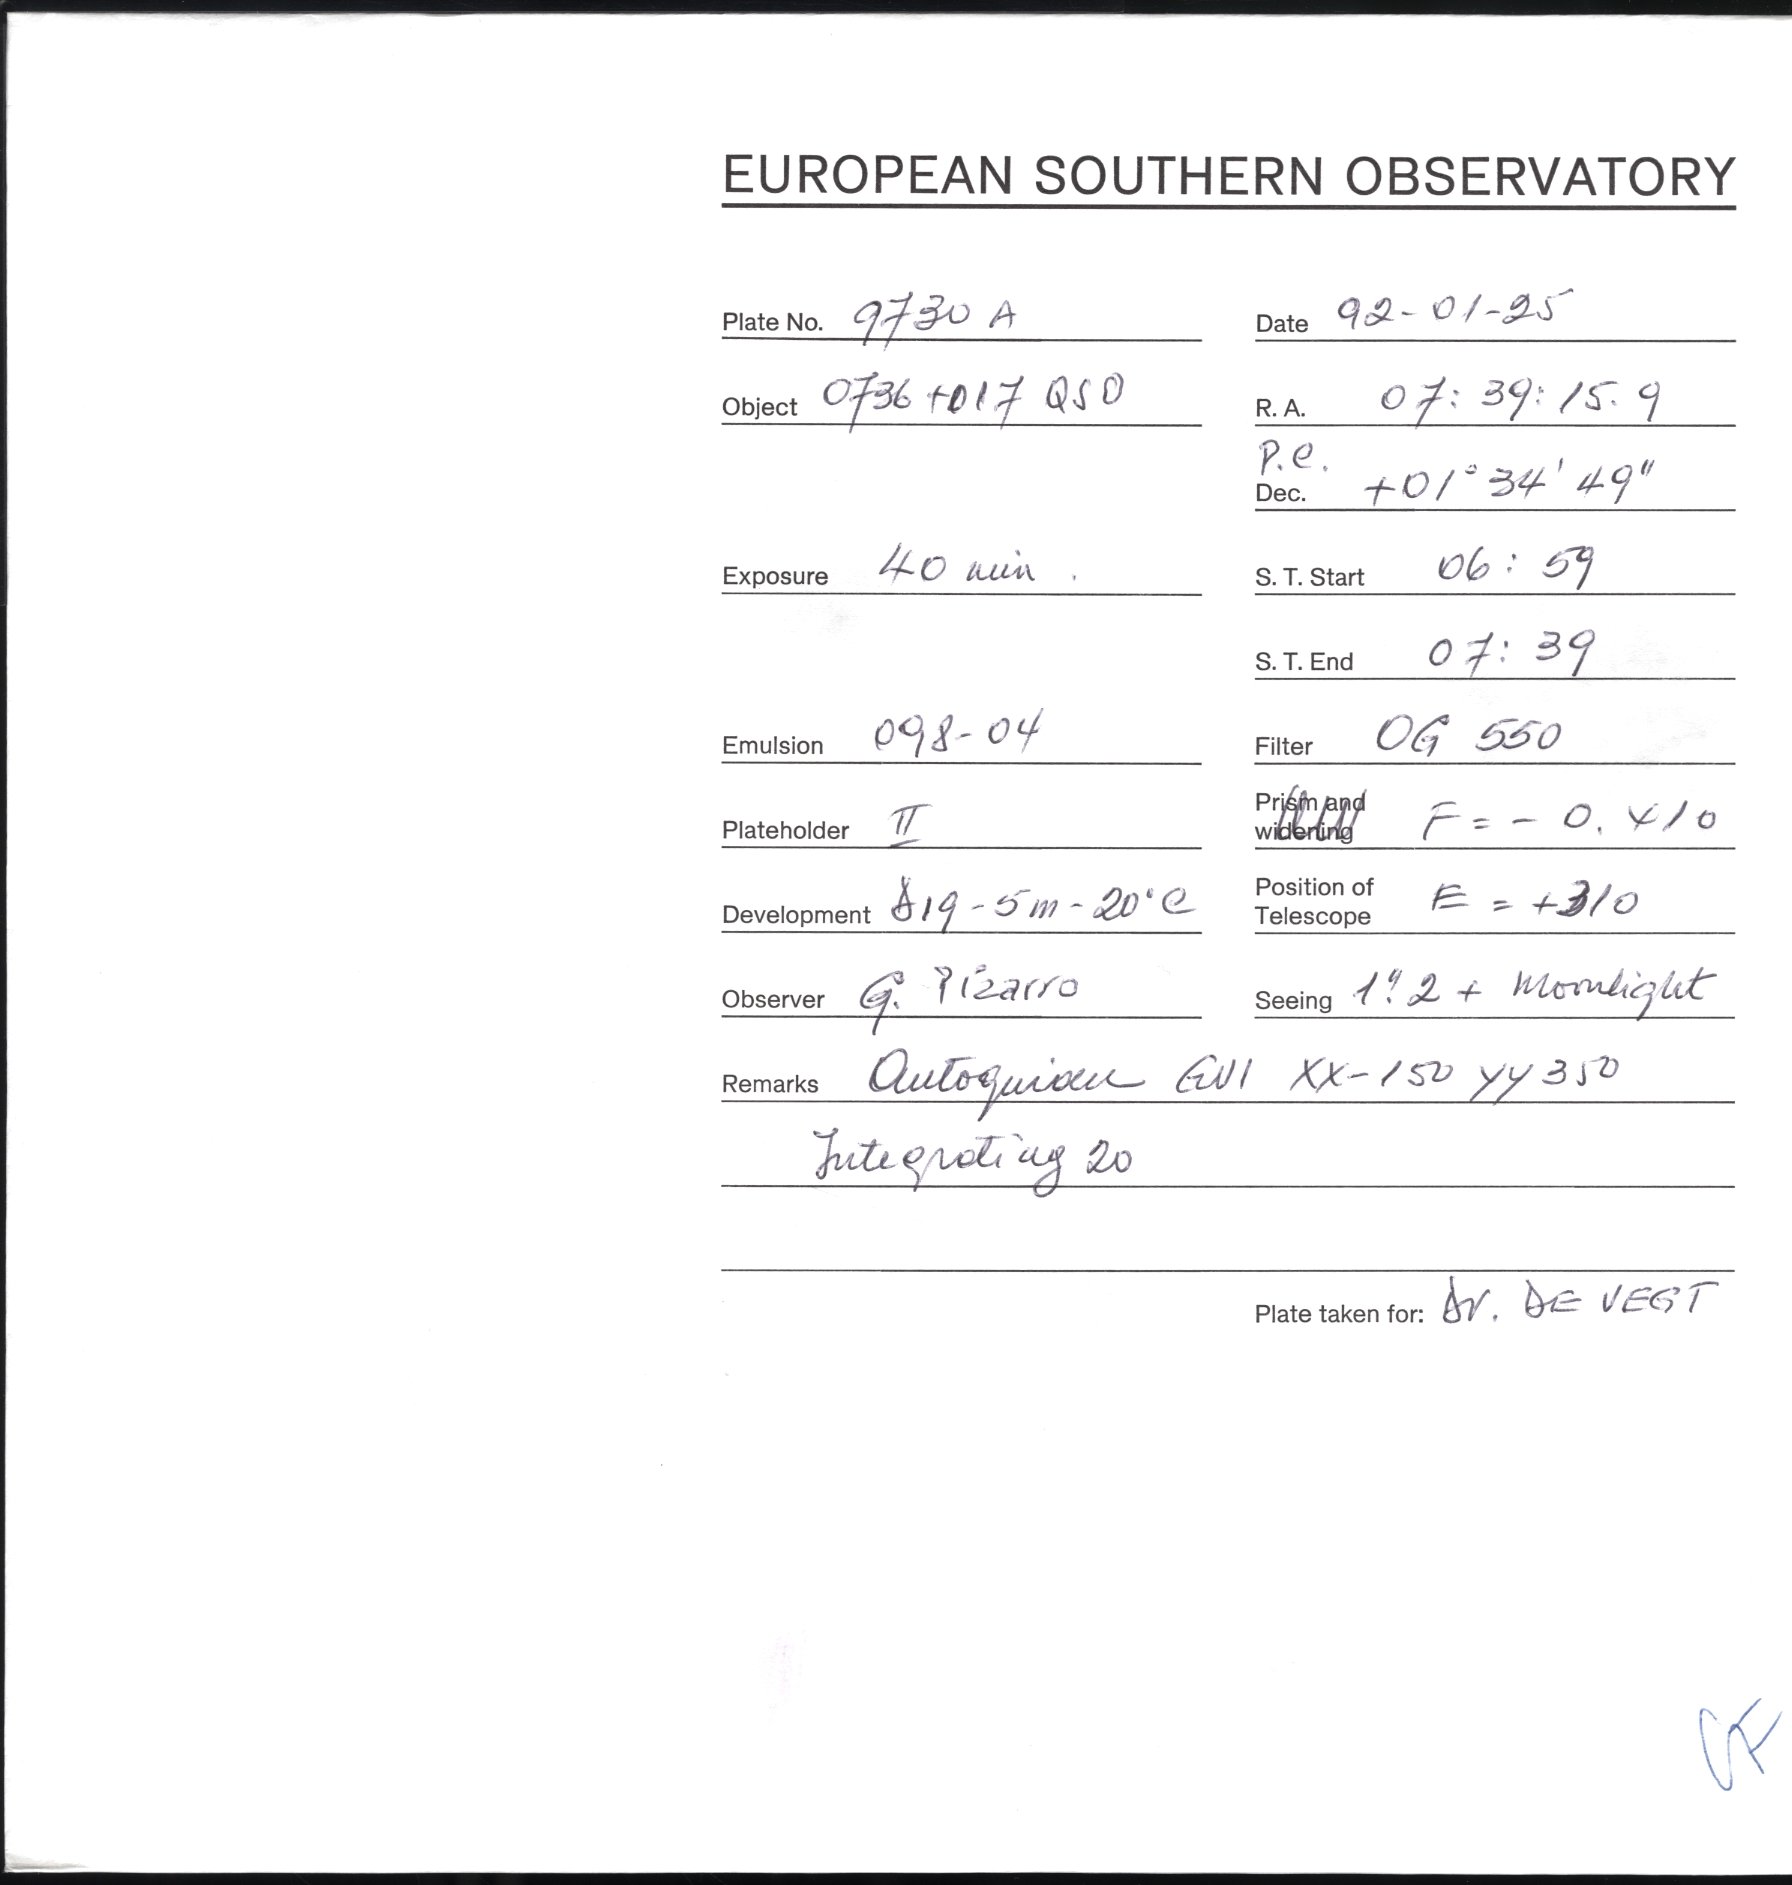 EUROPEAN SOUTHERN OBSERVATORY
Plate No. 9730 A Date 92-01-25
Object 0736+017 QSO R. A. 07: 39: 15. 9
P.C.
Dec. +01° 34' 49"
Exposure 40 min. S. T. Start 06: 59
S. T. End 07: 39
Emulsion 098-04 Filter OG 550
Plateholder II Prism and widening F = - 0. 410
Development D19-5m-20°C Position of Telescope E = +310
Observer G. Pizarro Seeing 1".2 + Moonlight
Remarks XX-150 YY 350
Integrating 20
Plate taken for: Dr. DE VEGT